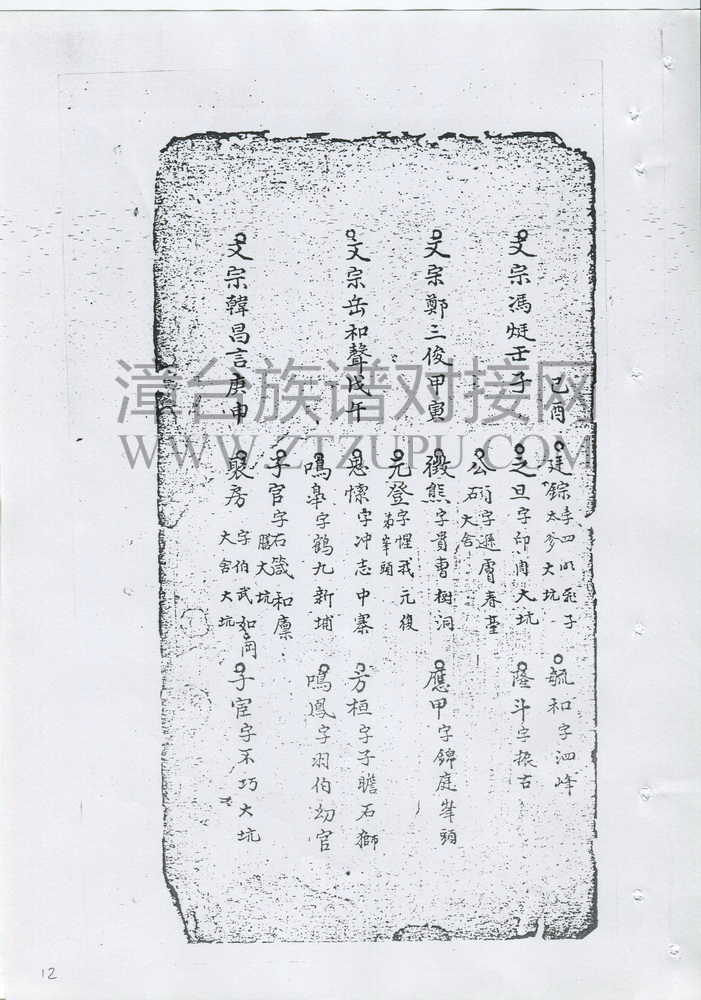 己酉
廷錝
太爹大坑
毓和字泗峰
文宗馮烶壬子
之旦字印周大坑
隆斗字振古
公
字遜膚春臺
大舍
文宗鄭三俊甲寅
徵熊字貴曹樹洞
應甲字錦庭峯頭
元登字惺我元復
峯頭
文宗岳和聲戊午
思懷字冲志中寨
方桓字子瞻石獅
鳴皋字鶴九新埔
鳴鳳字羽伯幼官
子官字石箴和凜
大坑
文宗韓昌言庚申
聚房字伯武如岡
大舍大坑
子宦字不巧大坑
漳台族谱对接网
WWW.ZTZUPU.COM
12